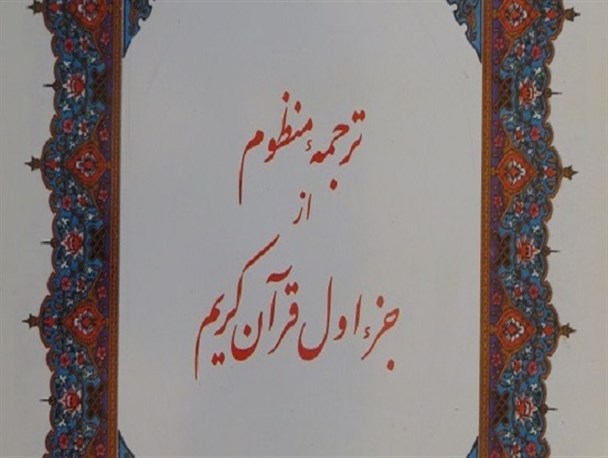 ترجمهٔ منظوم
از
جزء اول قرآن کریم